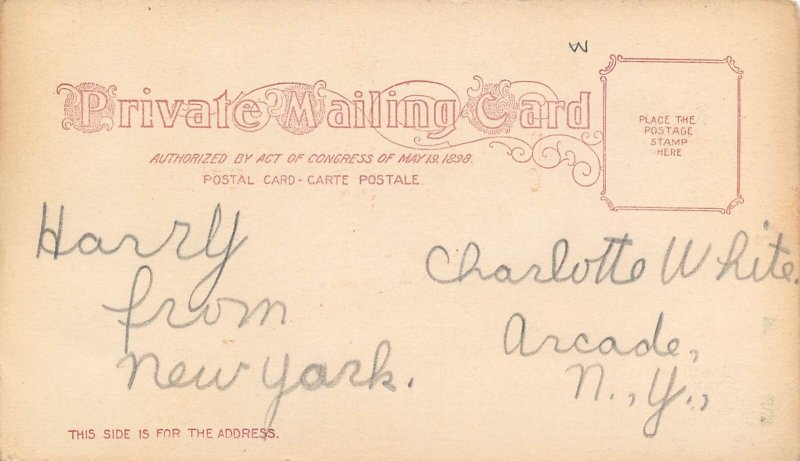 W
Private Mailing Card
AUTHORIZED BY ACT OF CONGRESS OF MAY 19, 1898.
POSTAL CARD - CARTE POSTALE.
PLACE THE
POSTAGE
STAMP
HERE
Harry
from
New York.
Charlotte White.
Arcade,
N., Y.,
THIS SIDE IS FOR THE ADDRESS.